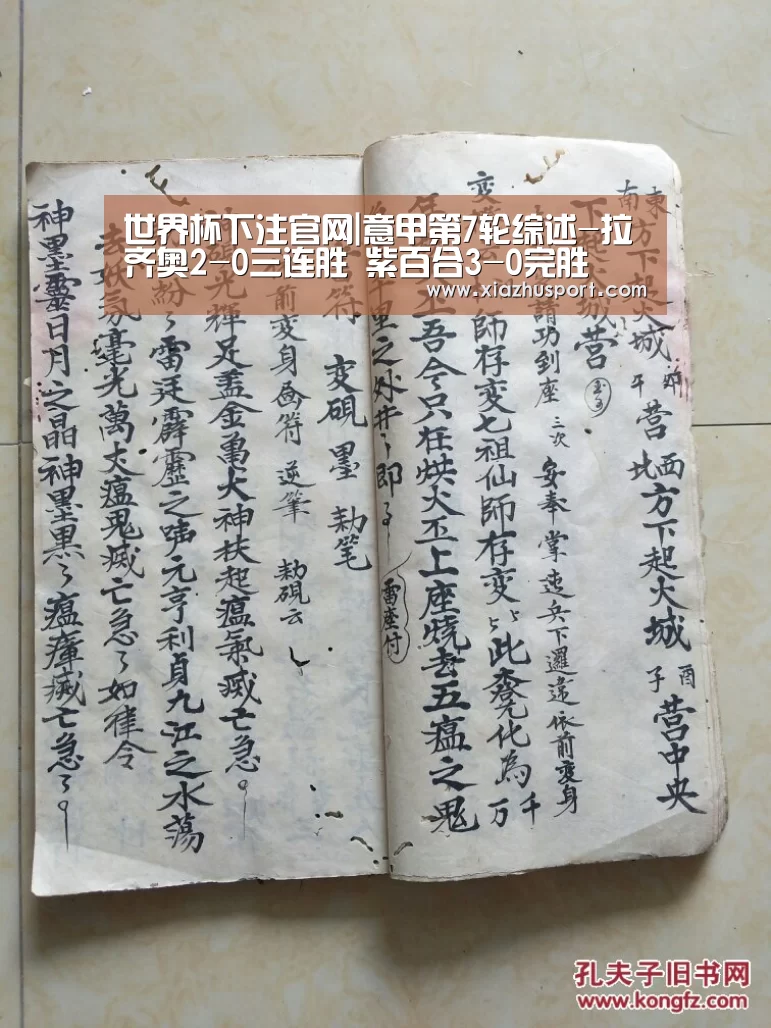 世界杯下注官网|意甲第7轮综述-拉
齐奥2-0三连胜 紫百合3-0完胜
www.xiazhusport.com
東方下起火城 卯 营 西方下起火城 酉 营中央
南 午 北 子
下起火城营
請功到座 三次 安奉掌 兵下邏 依前变身
師存变七祖仙師存变 此 化為千万
吾令只在烘火 上座燒去五瘟之鬼
里之外 即
雷座付
符 变硯 墨 勅笔
前变身画符 逆筆 勅硯云
光輝足盖金 火神扶起瘟氣滅亡急
紛 雷廷霹靂之 元亨利貞九江之水蕩
去妖氛毫光萬丈瘟鬼滅亡急 如律令
神墨靈日月之晶神墨黑 瘟 滅亡急
孔夫子旧书网
KONGFZ.COM